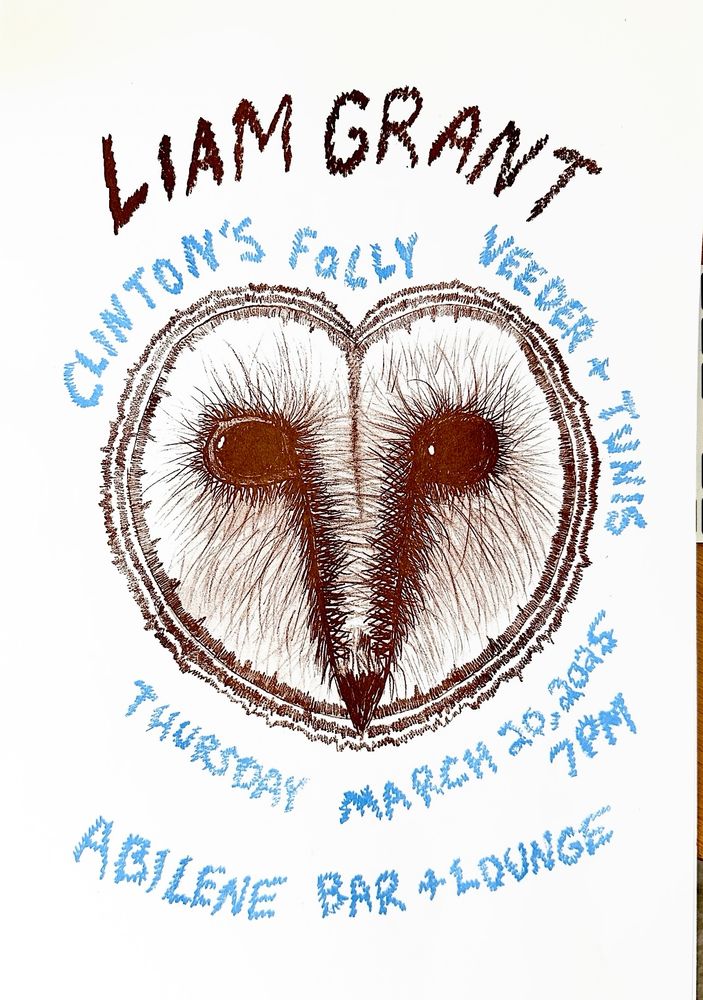 LIAM GRANT
CLINTON'S FOLLY VEEDER + TUNIS
THURSDAY MARCH 20, 2025
7PM
ABILENE BAR + LOUNGE